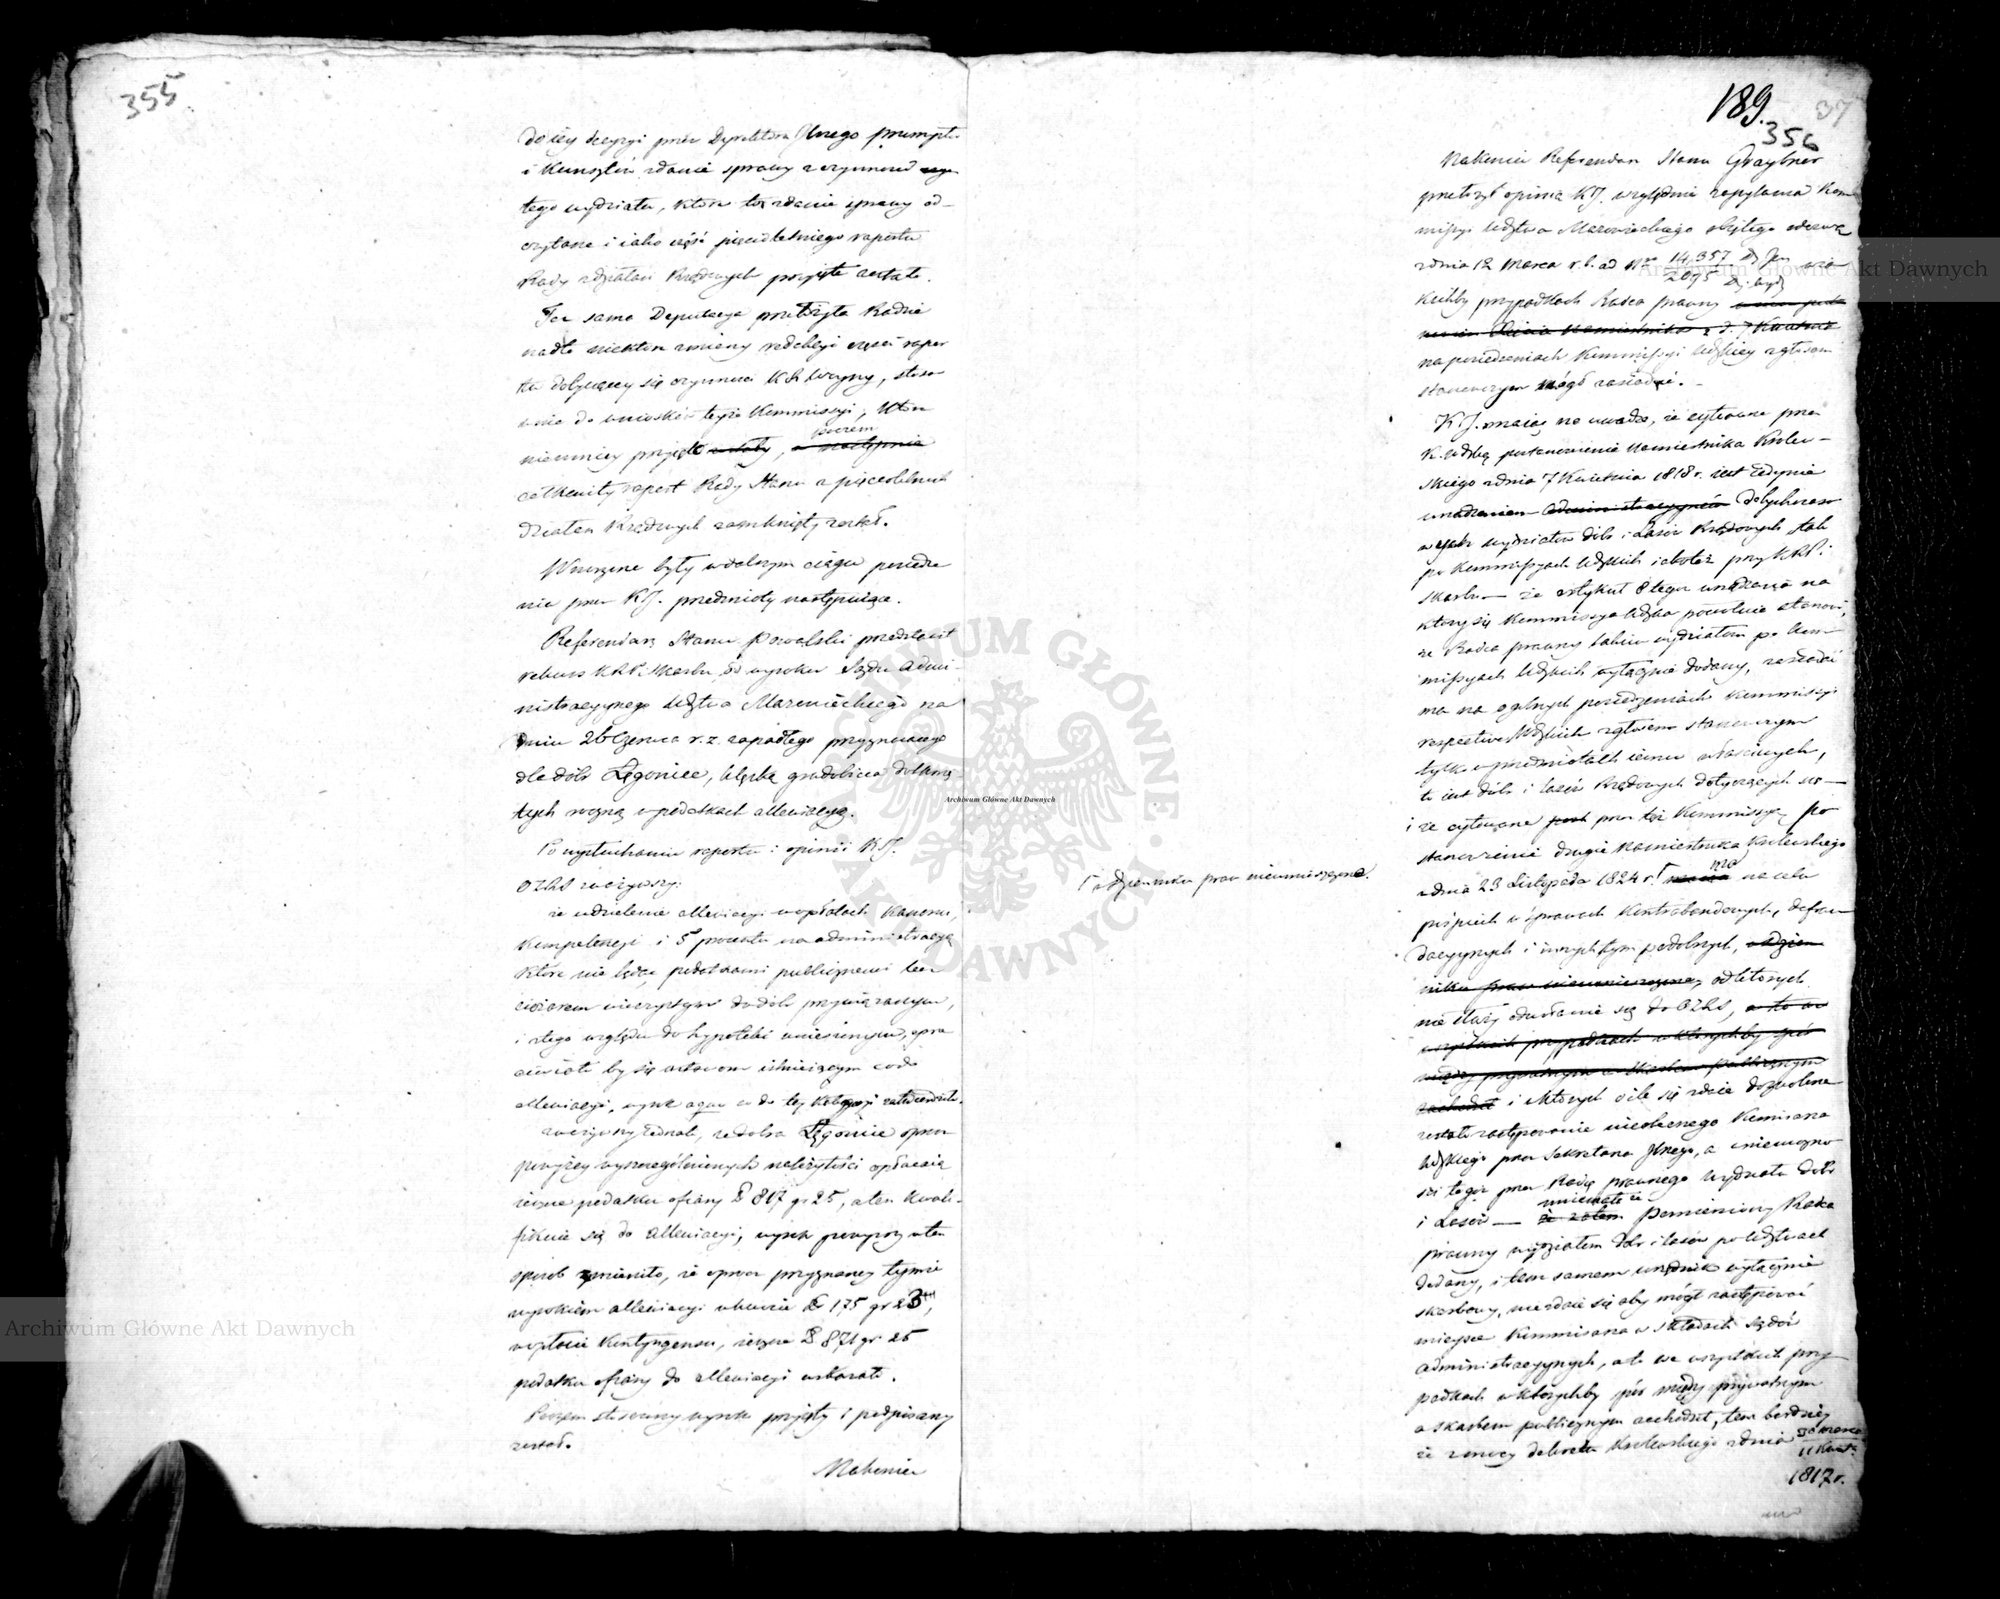 355
do iey decyzyi przez Dyrektora Jlnego przemysłu
i Kunsztów zdanie sprawy z czynności
tego wydziału, które to zdanie sprawy od-
czytane i iako część pięcioletniego raportu
Rady z działań Rządowych przyięte zostało.
Taż sama Deputacya przełożyła Radzie
nadto niektóre zmiany redakcyi części rapor
tu dotyczącey się czynności KR Woyny, stoso
wnie do wniosków teyże Kommissyi, które
niemniey przyięto , poczem
całkowity raport Rady Stanu z pięcioletnich
działań Rządowych zamknięty został.
Wnoszone były w dalszym ciągu posiedze
nia przez KJ. przedmioty następuiące.
Referendarz Stanu Kowalski przedstawił
rekurs KRP. Skarbu od wyroku Sądu Admi-
nistracyjnego Wdztwa Mazowieckiego na
dniu 26 Czerwca r. z. zapadłego przyznaiącego
dla dóbr Łęgonice, klęską gradobicia dotknię-
tych roczną w podatkach allewiacyą.
Po wysłuchaniu raportu i opinii KJ.
OZRS zważywszy:
że udzielenie allewiacyi w opłatach Kanonu,
Kompetencyi i 5 procentu na administracyą
które nie będąc podatkami publicznemi lecz
ciężarem wieczystym do dóbr przywiązanym,
i z tego względu do hypoteki wniesionym, sprze
ciwiało by się ustawom istnieiącym co do
allewiacyi, wyrok co do tey kategoryi zatwierdziło.
zważywszy iednak, że dobra Łęgonice oprócz
powyżey wyszczególnionych należytości opłacaią
ieszcze podatku ofiary 817 gr 25, a ten kwali-
fikuie się do allewiacyi, wyrok powyższy w ten
sposób zmieniło, że oprócz przyznaney tymże
wyrokiem allewiacyi w kwocie 175 gr 23,
w opłacie Kontyngensu, ieszcze 871 gr 25
podatku ofiary do allewiacyi wskazało.
Poczem stosowny wyrok przyięty i podpisany
został.
Nakoniec
189.
37
356
Nakoniec Referendarz Stanu Graybner
przełożył opinią KJ. względnie zapytania Kom
missyi Wdztwa Mazowieckiego obiętego odezwą
z dnia 12 Marca r. b. ad Nr 14,357/2095 w ia
kichby przypadkach Radca prawny
na posiedzeniach Kommissyi Wdzkiey z głosem
stanowczym mógł zasiadać. -
KJ. maiąc na uwadze, że cytowane przez
K. Wdzką postanowienie Namiestnika Królew-
skiego z dnia 7 Kwietnia 1818 r. iest iedynie
urządzeniem dotychczaso
wych wydziałów dóbr i Lasów Rządowych tak
po Kommissyach Wdzkich iakoteż przy KRP.
Skarbu — że artykuł 8 tego urządzenia na
który się Kommissya Wdzka powołuie stanowi,
że Radca prawny takim wydziałom po Kom-
missyach Wdzkich wyłącznie dodany, zasiadać
ma na ogólnych posiedzeniach Kommissyi
respective Wdzkich z głosem stanowczym
tylko w przedmiotach iemu właściwych,
to iest dóbr i lasów Rządowych dotyczących się —
i że cytowane przez też Kommissyą po
stanowienie drugie Namiestnika Królewskiego
z dnia 23 Listopada 1824 r. ma na celu
pośpiech w sprawach Kontrabandowych, defrau
dacyjnych i innych tym podobnych,
odzien
nika praw nieumieszczone, od których
nie służy odwołanie się do OZRS, a to we
wszystkich przypadkach w których by spór
między prywatnym a Skarbem publicznym
zachodził i w których o ile się zdaie dozwolone
zostało zastępowanie nieobecnego Kommissarza
Wdzkiego przez Sekretarza Jlnego, a w niemożno
ści tegoż przez Radcę prawnego wydziału dóbr
i Lasów — nimniemało że pomieniony Radca
prawny wydziałom dóbr i lasów po Wdztwach
dodany, i tem samem urzędnik wyłącznie
skarbowy, nie zdaie się aby mógł zastępować
mieysce Kommissarza w składach Sądów
administracyjnych, a to we wszystkich przy-
padkach w którychby spór między prywatnym
a Skarbem publicznym zachodził, tem bardziey
że z mocy dekretu Królewskiego z dnia 30 Marca/11 Kwiet.
1817 r.
Γ a dziennikiem praw nieumieszczone.
Archiwum Główne Akt Dawnych
Archiwum Główne Akt Dawnych
Archiwum Główne Akt Dawnych
ARCHIWUM GŁÓWNE AKT DAWNYCH